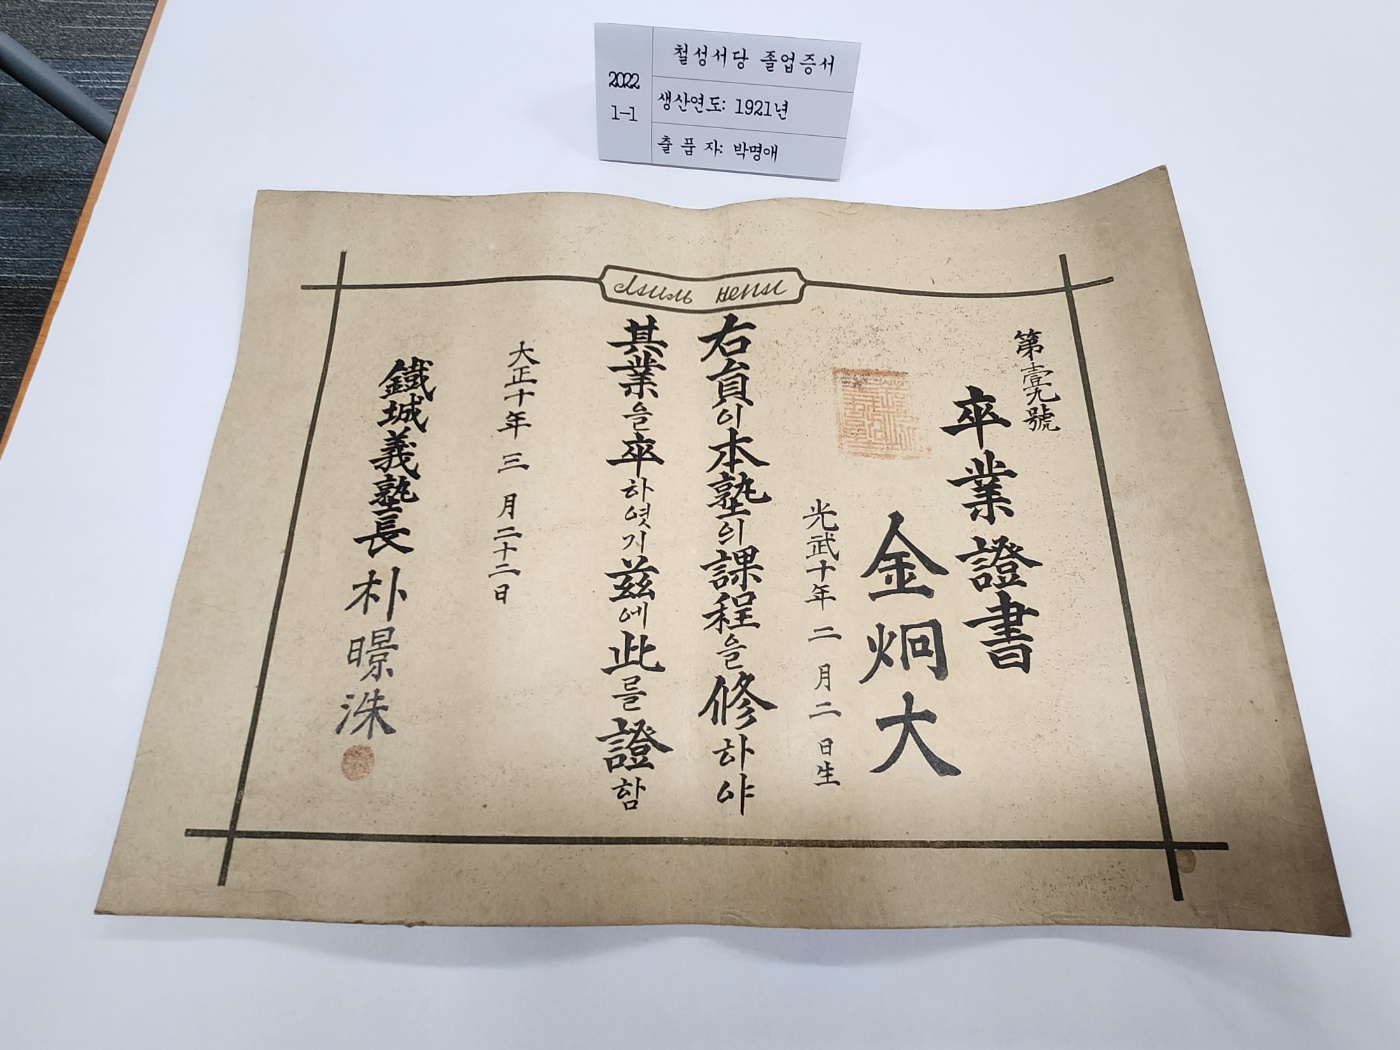 철성서당 졸업증서
2022
1-1
생산연도: 1921년
출 품 자: 박명애
第壹九號
卒業證書
金炯大
光武十年 二 月 二 日生
右員이本塾의課程을修하야
其業을卒하엿기玆에此를證함
大正十年 三 月二十二日
鐵城義塾長 朴暻洙